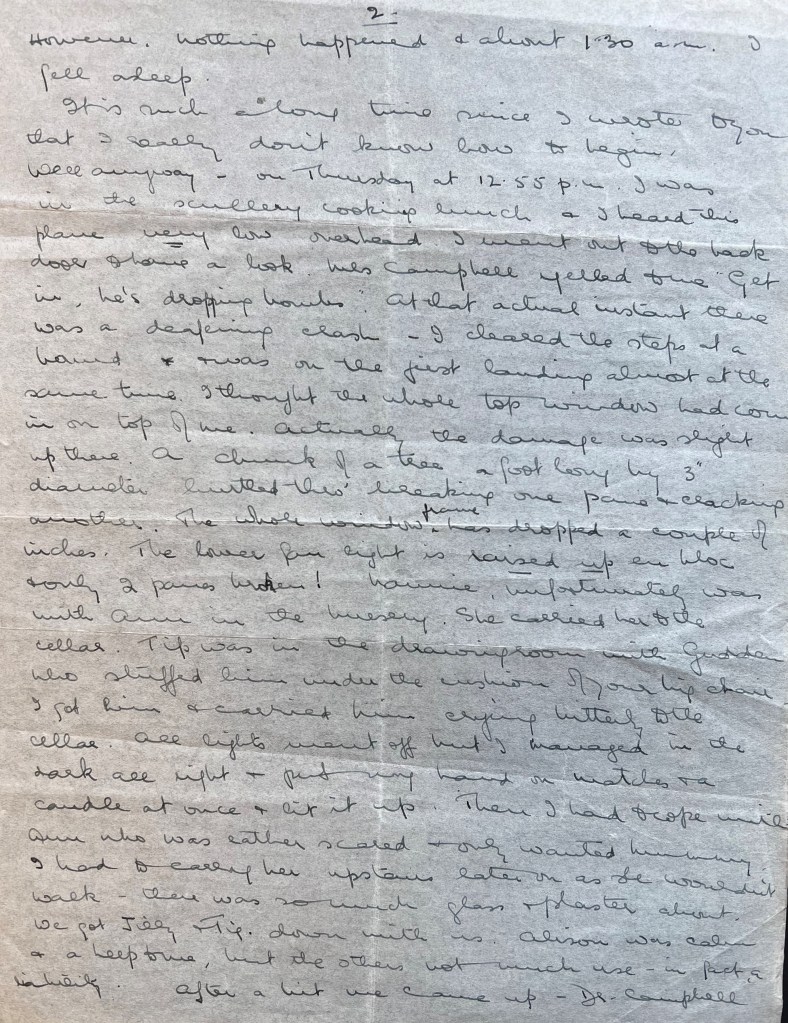 2.
However. nothing happened & about 1.30 a.m. I
fell asleep.
It is such a long time since I wrote to you
that I really don't know how to begin.
Well anyway - on Thursday at 12.55 p.m. I was
in the scullery cooking lunch & I heard this
plane very low overhead I went out to the back
door to have a look. Mrs Campbell yelled to me "Get
in, he's dropping bombs". At that actual instant there
was a deafening crash - I cleared the steps at a
bound & was on the first landing almost at the
same time. I thought the whole top window had come
in on top of me. Actually the damage was slight
up there. A chunk of a tree a foot long by 3"
diameter hurtled thro' breaking one pane & cracking
another. The whole window frame has dropped a couple of
inches. The lower fan light is raised up en bloc
& only 2 panes broken! Nannie, unfortunately was
with Ann in the nursery. She carried her to the
cellar. Tip was in the drawingroom with
who stuffed him under the cushion of your big chair.
I got him & carried him crying bitterly to the
cellar. All lights went off but I managed in the
dark all right & put my hand on matches & a
candle at once & lit it up. Then I had to cope with
Ann who was rather scared & only wanted mummy.
I had to carry her upstairs later on as she wouldn't
walk - there was so much glass & plaster about.
We got Jilly & Tip. down with us. Alison was calm
& a help to me, but the others not much use - in fact, a
liability. After a bit we came up - Dr. Campbell